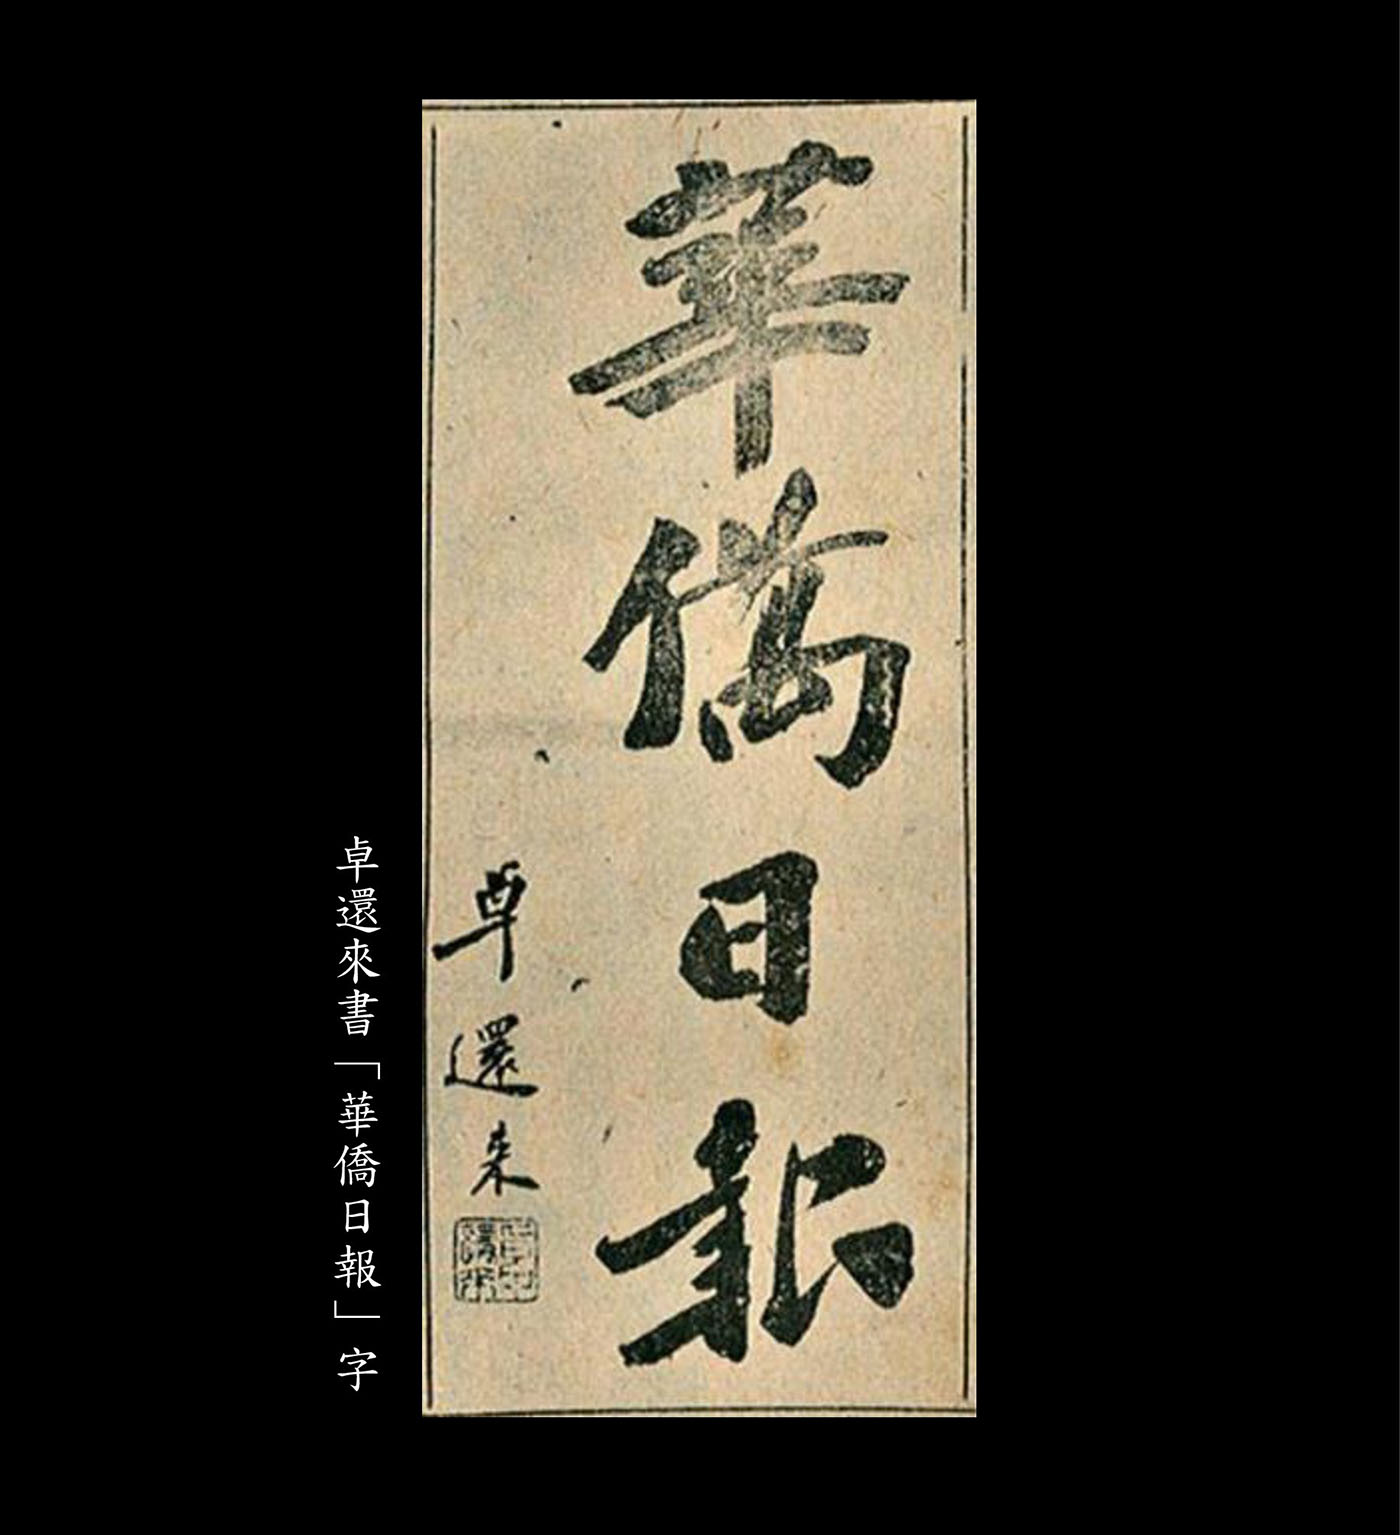 華僑日報
卓還來
卓還來書「華僑日報」字